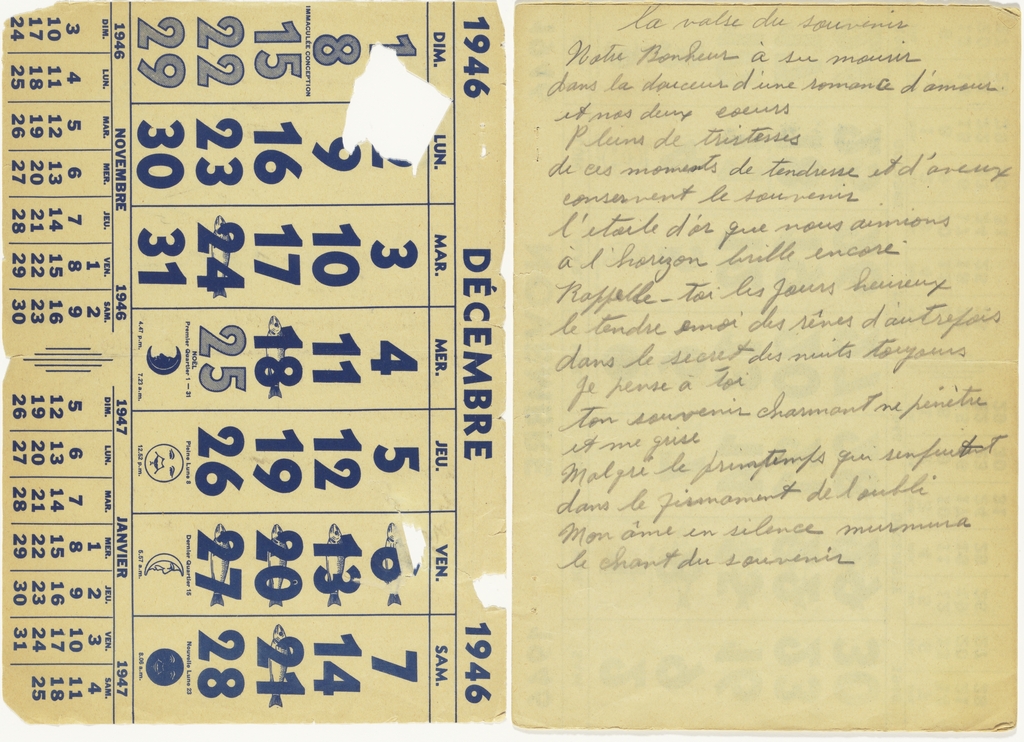 1946 DÉCEMBRE 1946
DIM. LUN. MAR. MER. JEU. VEN. SAM.
1 2 3 4 5 6 7
8 9 10 11 12 13 14
IMMACULÉE CONCEPTION
15 16 17 18 19 20 21
22 23 24 25 26 27 28
NOËL
29 30 31
Premier Quartier 1 — 31
4.47 p.m. 7.23 a.m.
Pleine Lune 8
12.52 p.m.
Dernier Quartier 15
5.57 a.m.
Nouvelle Lune 23
8.06 a.m.
1946 NOVEMBRE 1946
DIM. LUN. MAR. MER. JEU. VEN. SAM.
1 2
3 4 5 6 7 8 9
10 11 12 13 14 15 16
17 18 19 20 21 22 23
24 25 26 27 28 29 30
1947 JANVIER 1947
DIM. LUN. MAR. MER. JEU. VEN. SAM.
1 2 3 4
5 6 7 8 9 10 11
12 13 14 15 16 17 18
19 20 21 22 23 24 25
26 27 28 29 30 31
la valse du souvenir
Notre Bonheur à su mourir
dans la douceur d'une romance d'amour.
et nos deux coeurs
Pleins de tristesses
de ces moments de tendresse et d'aveux
conservent le souvenir
l'étoile d'or que nous aimions
à l'horizon brille encore
Rappelle-toi les jours heureux
le tendre emoi des rêves d'autrefois
dans le secret des nuits toujours
je pense à toi
ton souvenir charmant me pénètre
et me grise
Malgré le printemps qui s'enfuit
dans le firmament de l'oubli
Mon âme en silence murmura
le chant du souvenir